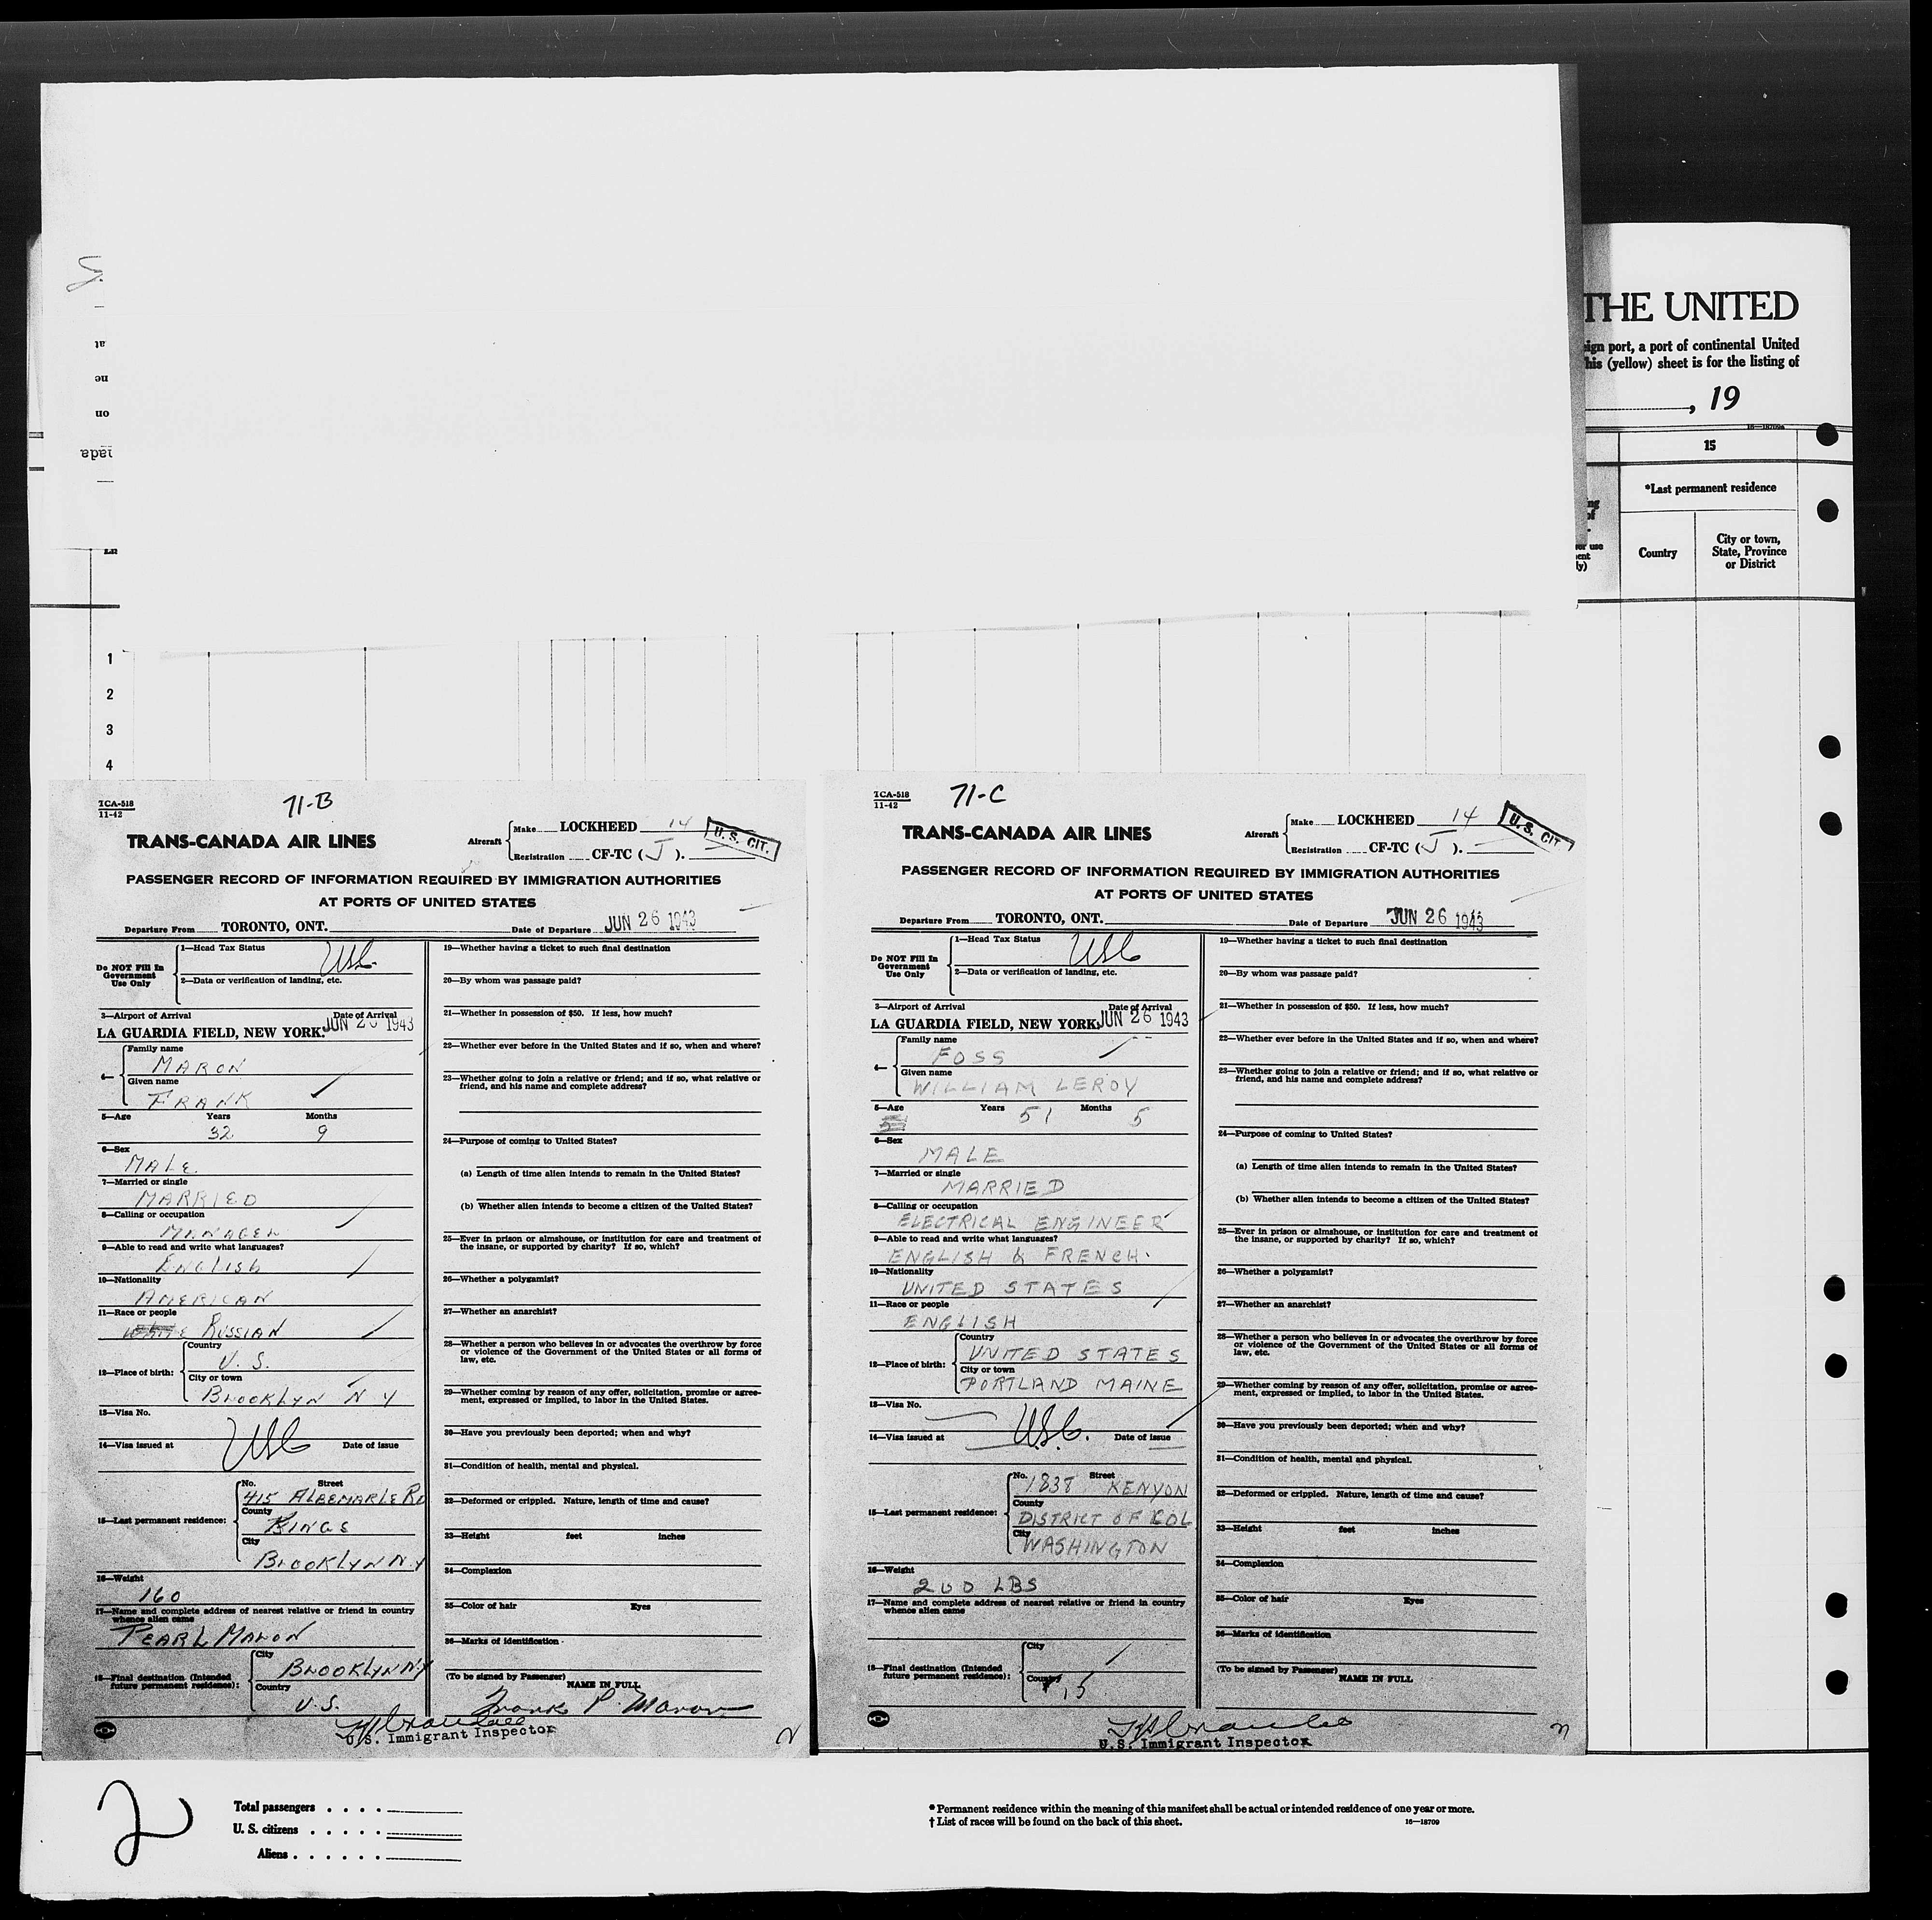 THE UNITED
ign port, a port of continental United
his (yellow) sheet is for the listing of
, 19
15
*Last permanent residence
Country
City or town,
State, Province
or District
1
2
3
4
71-B
TCA-518
11-42
TRANS-CANADA AIR LINES
Aircraft
Make LOCKHEED 14
Registration CF-TC (J).
U.S. CIT.
PASSENGER RECORD OF INFORMATION REQUIRED BY IMMIGRATION AUTHORITIES
AT PORTS OF UNITED STATES
Departure From TORONTO, ONT. Date of Departure JUN 26 1943
Do NOT Fill In
Government
Use Only
1—Head Tax Status USC
2—Data or verification of landing, etc.
3—Airport of Arrival Date of Arrival
LA GUARDIA FIELD, NEW YORK. JUN 26 1943
4—
Family name
MARON
Given name
FRANK
5—Age Years Months
32 9
6—Sex
MALE
7—Married or single
MARRIED
8—Calling or occupation
MANAGER
9—Able to read and write what languages?
ENGLISH
10—Nationality
AMERICAN
11—Race or people
RUSSIAN
12—Place of birth:
Country
U. S.
City or town
BROOKLYN N Y
13—Visa No.
USC
14—Visa issued at Date of issue
15—Last permanent residence:
No. Street
415 ALBEMARLE RD
County
KINGS
City
BROOKLYN N.Y
16—Weight
160
17—Name and complete address of nearest relative or friend in country
whence alien came
PEARL MARON
18—Final destination (Intended
future permanent residence):
City
BROOKLYN N.Y
Country
U.S.
19—Whether having a ticket to such final destination
20—By whom was passage paid?
21—Whether in possession of $50. If less, how much?
22—Whether ever before in the United States and if so, when and where?
23—Whether going to join a relative or friend; and if so, what relative or
friend, and his name and complete address?
24—Purpose of coming to United States?
(a) Length of time alien intends to remain in the United States?
(b) Whether alien intends to become a citizen of the United States?
25—Ever in prison or almshouse, or institution for care and treatment of
the insane, or supported by charity? If so, which?
26—Whether a polygamist?
27—Whether an anarchist?
28—Whether a person who believes in or advocates the overthrow by force
or violence of the Government of the United States or all forms of
law, etc.
29—Whether coming by reason of any offer, solicitation, promise or agree-
ment, expressed or implied, to labor in the United States.
30—Have you previously been deported; when and why?
31—Condition of health, mental and physical.
32—Deformed or crippled. Nature, length of time and cause?
33—Height feet inches
34—Complexion
35—Color of hair Eyes
36—Marks of identification
(To be signed by Passenger)
NAME IN FULL
Frank P. Maron
U.S. Immigrant Inspector
71-C
TCA-518
11-42
TRANS-CANADA AIR LINES
Aircraft
Make LOCKHEED 14
Registration CF-TC (J).
U.S. CIT.
PASSENGER RECORD OF INFORMATION REQUIRED BY IMMIGRATION AUTHORITIES
AT PORTS OF UNITED STATES
Departure From TORONTO, ONT. Date of Departure JUN 26 1943
Do NOT Fill In
Government
Use Only
1—Head Tax Status USC
2—Data or verification of landing, etc.
3—Airport of Arrival Date of Arrival
LA GUARDIA FIELD, NEW YORK. JUN 26 1943
4—
Family name
FOSS
Given name
WILLIAM LEROY
5—Age Years 51 Months 5
6—Sex
MALE
7—Married or single
MARRIED
8—Calling or occupation
ELECTRICAL ENGINEER
9—Able to read and write what languages?
ENGLISH & FRENCH.
10—Nationality
UNITED STATES
11—Race or people
ENGLISH
12—Place of birth:
Country
UNITED STATES
City or town
PORTLAND MAINE
13—Visa No.
U.S.C.
14—Visa issued at Date of issue
15—Last permanent residence:
No. Street
1838 KENYON
County
DISTRICT OF COL
City
WASHINGTON
16—Weight
200 LBS
17—Name and complete address of nearest relative or friend in country
whence alien came
18—Final destination (Intended
future permanent residence):
City
Country
19—Whether having a ticket to such final destination
20—By whom was passage paid?
21—Whether in possession of $50. If less, how much?
22—Whether ever before in the United States and if so, when and where?
23—Whether going to join a relative or friend; and if so, what relative or
friend, and his name and complete address?
24—Purpose of coming to United States?
(a) Length of time alien intends to remain in the United States?
(b) Whether alien intends to become a citizen of the United States?
25—Ever in prison or almshouse, or institution for care and treatment of
the insane, or supported by charity? If so, which?
26—Whether a polygamist?
27—Whether an anarchist?
28—Whether a person who believes in or advocates the overthrow by force
or violence of the Government of the United States or all forms of
law, etc.
29—Whether coming by reason of any offer, solicitation, promise or agree-
ment, expressed or implied, to labor in the United States.
30—Have you previously been deported; when and why?
31—Condition of health, mental and physical.
32—Deformed or crippled. Nature, length of time and cause?
33—Height feet inches
34—Complexion
35—Color of hair Eyes
36—Marks of identification
(To be signed by Passenger)
NAME IN FULL
U.S. Immigrant Inspector
2
Total passengers . . . .
U. S. citizens . . . . .
Aliens . . . . . .
* Permanent residence within the meaning of this manifest shall be actual or intended residence of one year or more.
† List of races will be found on the back of this sheet.
16—18709